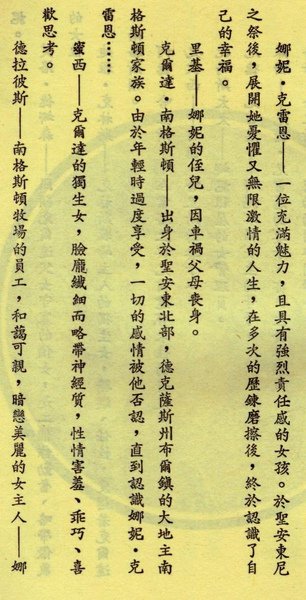 娜妮·克雷恩——一位充滿魅力，且具有強烈責任感的女孩。於聖安東尼
之祭後，展開她憂懼又無限激情的人生，在多次的歷鍊磨擦後，終於認識了自
己的幸福。
里基——娜妮的侄兒，因車禍父母喪身。
克爾達·南格斯頓——出身於聖安東北部，德克薩斯州布爾鎮的大地主南
格斯頓家族。由於年輕時過度享受，一切的感情被他否認，直到認識娜妮·克
雷恩……
蜜西——克爾達的獨生女，臉龐纖細而略帶神經質，性情害羞、乖巧、喜
歡思考。
德拉彼斯——南格斯頓牧場的員工，和藹可親，暗戀美麗的女主人——娜
妮。